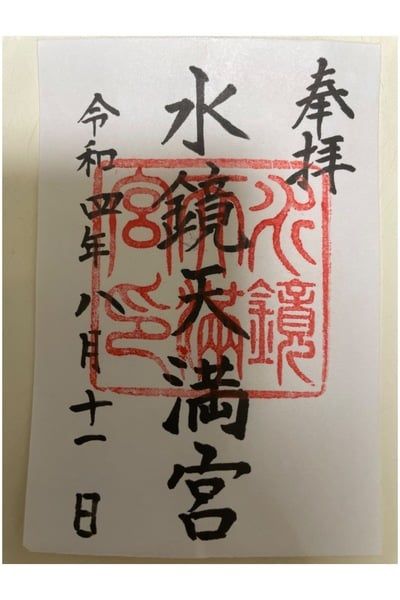 奉拝
水鏡天満宮
水鏡天満宮印
令和四年八月十一日